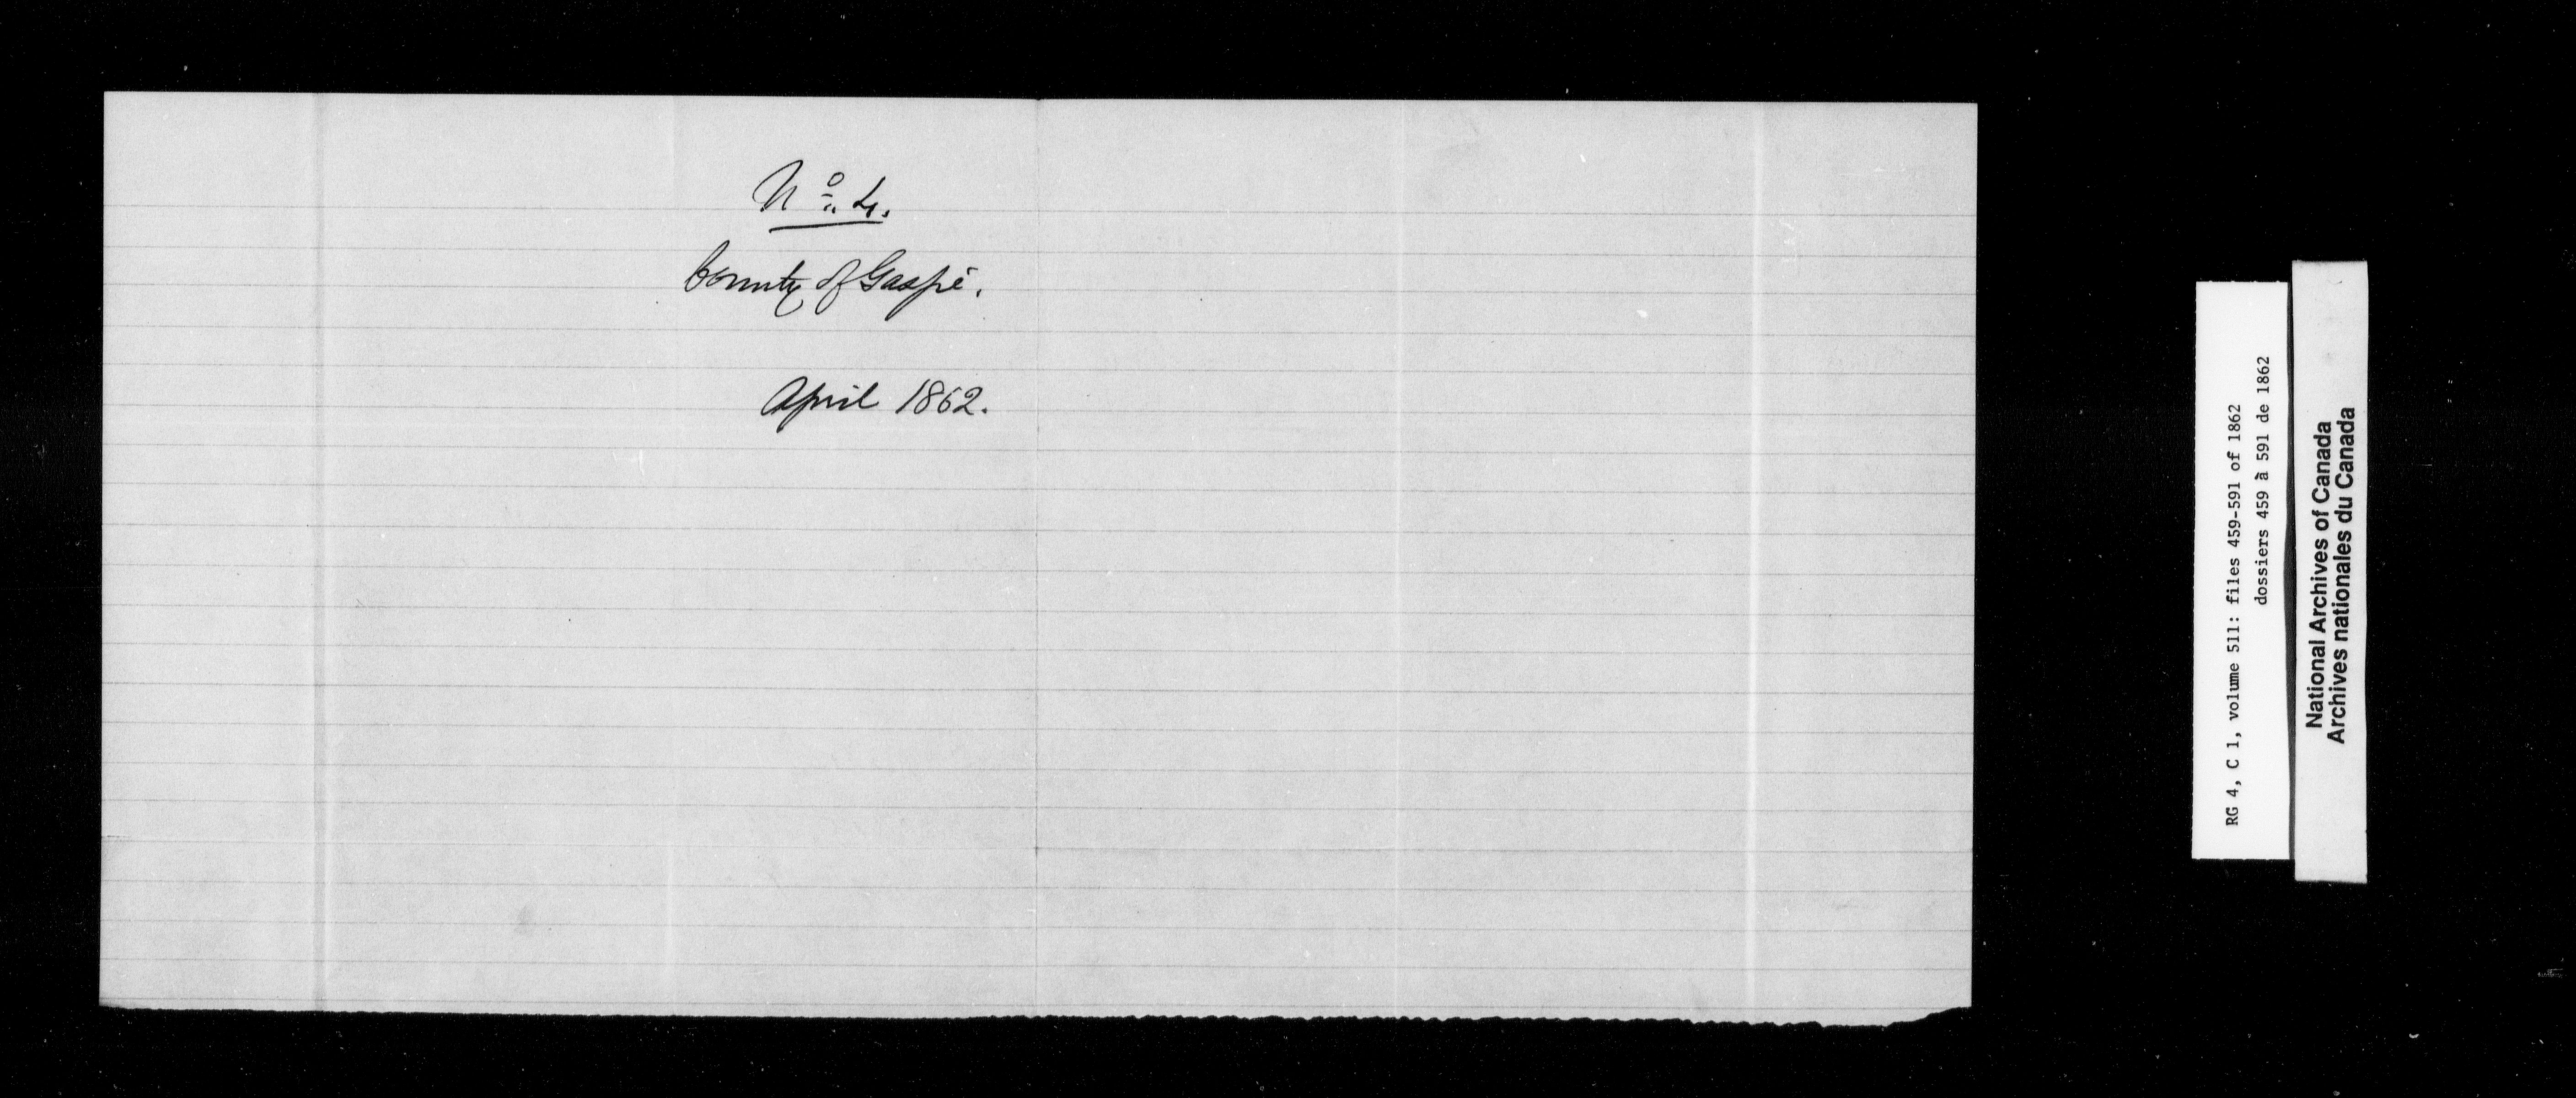 Nº. 4.
County of Gaspé.
April 1862.
RG 4, C 1, volume 511: files 459-591 of 1862
dossiers 459 à 591 de 1862
National Archives of Canada
Archives nationales du Canada